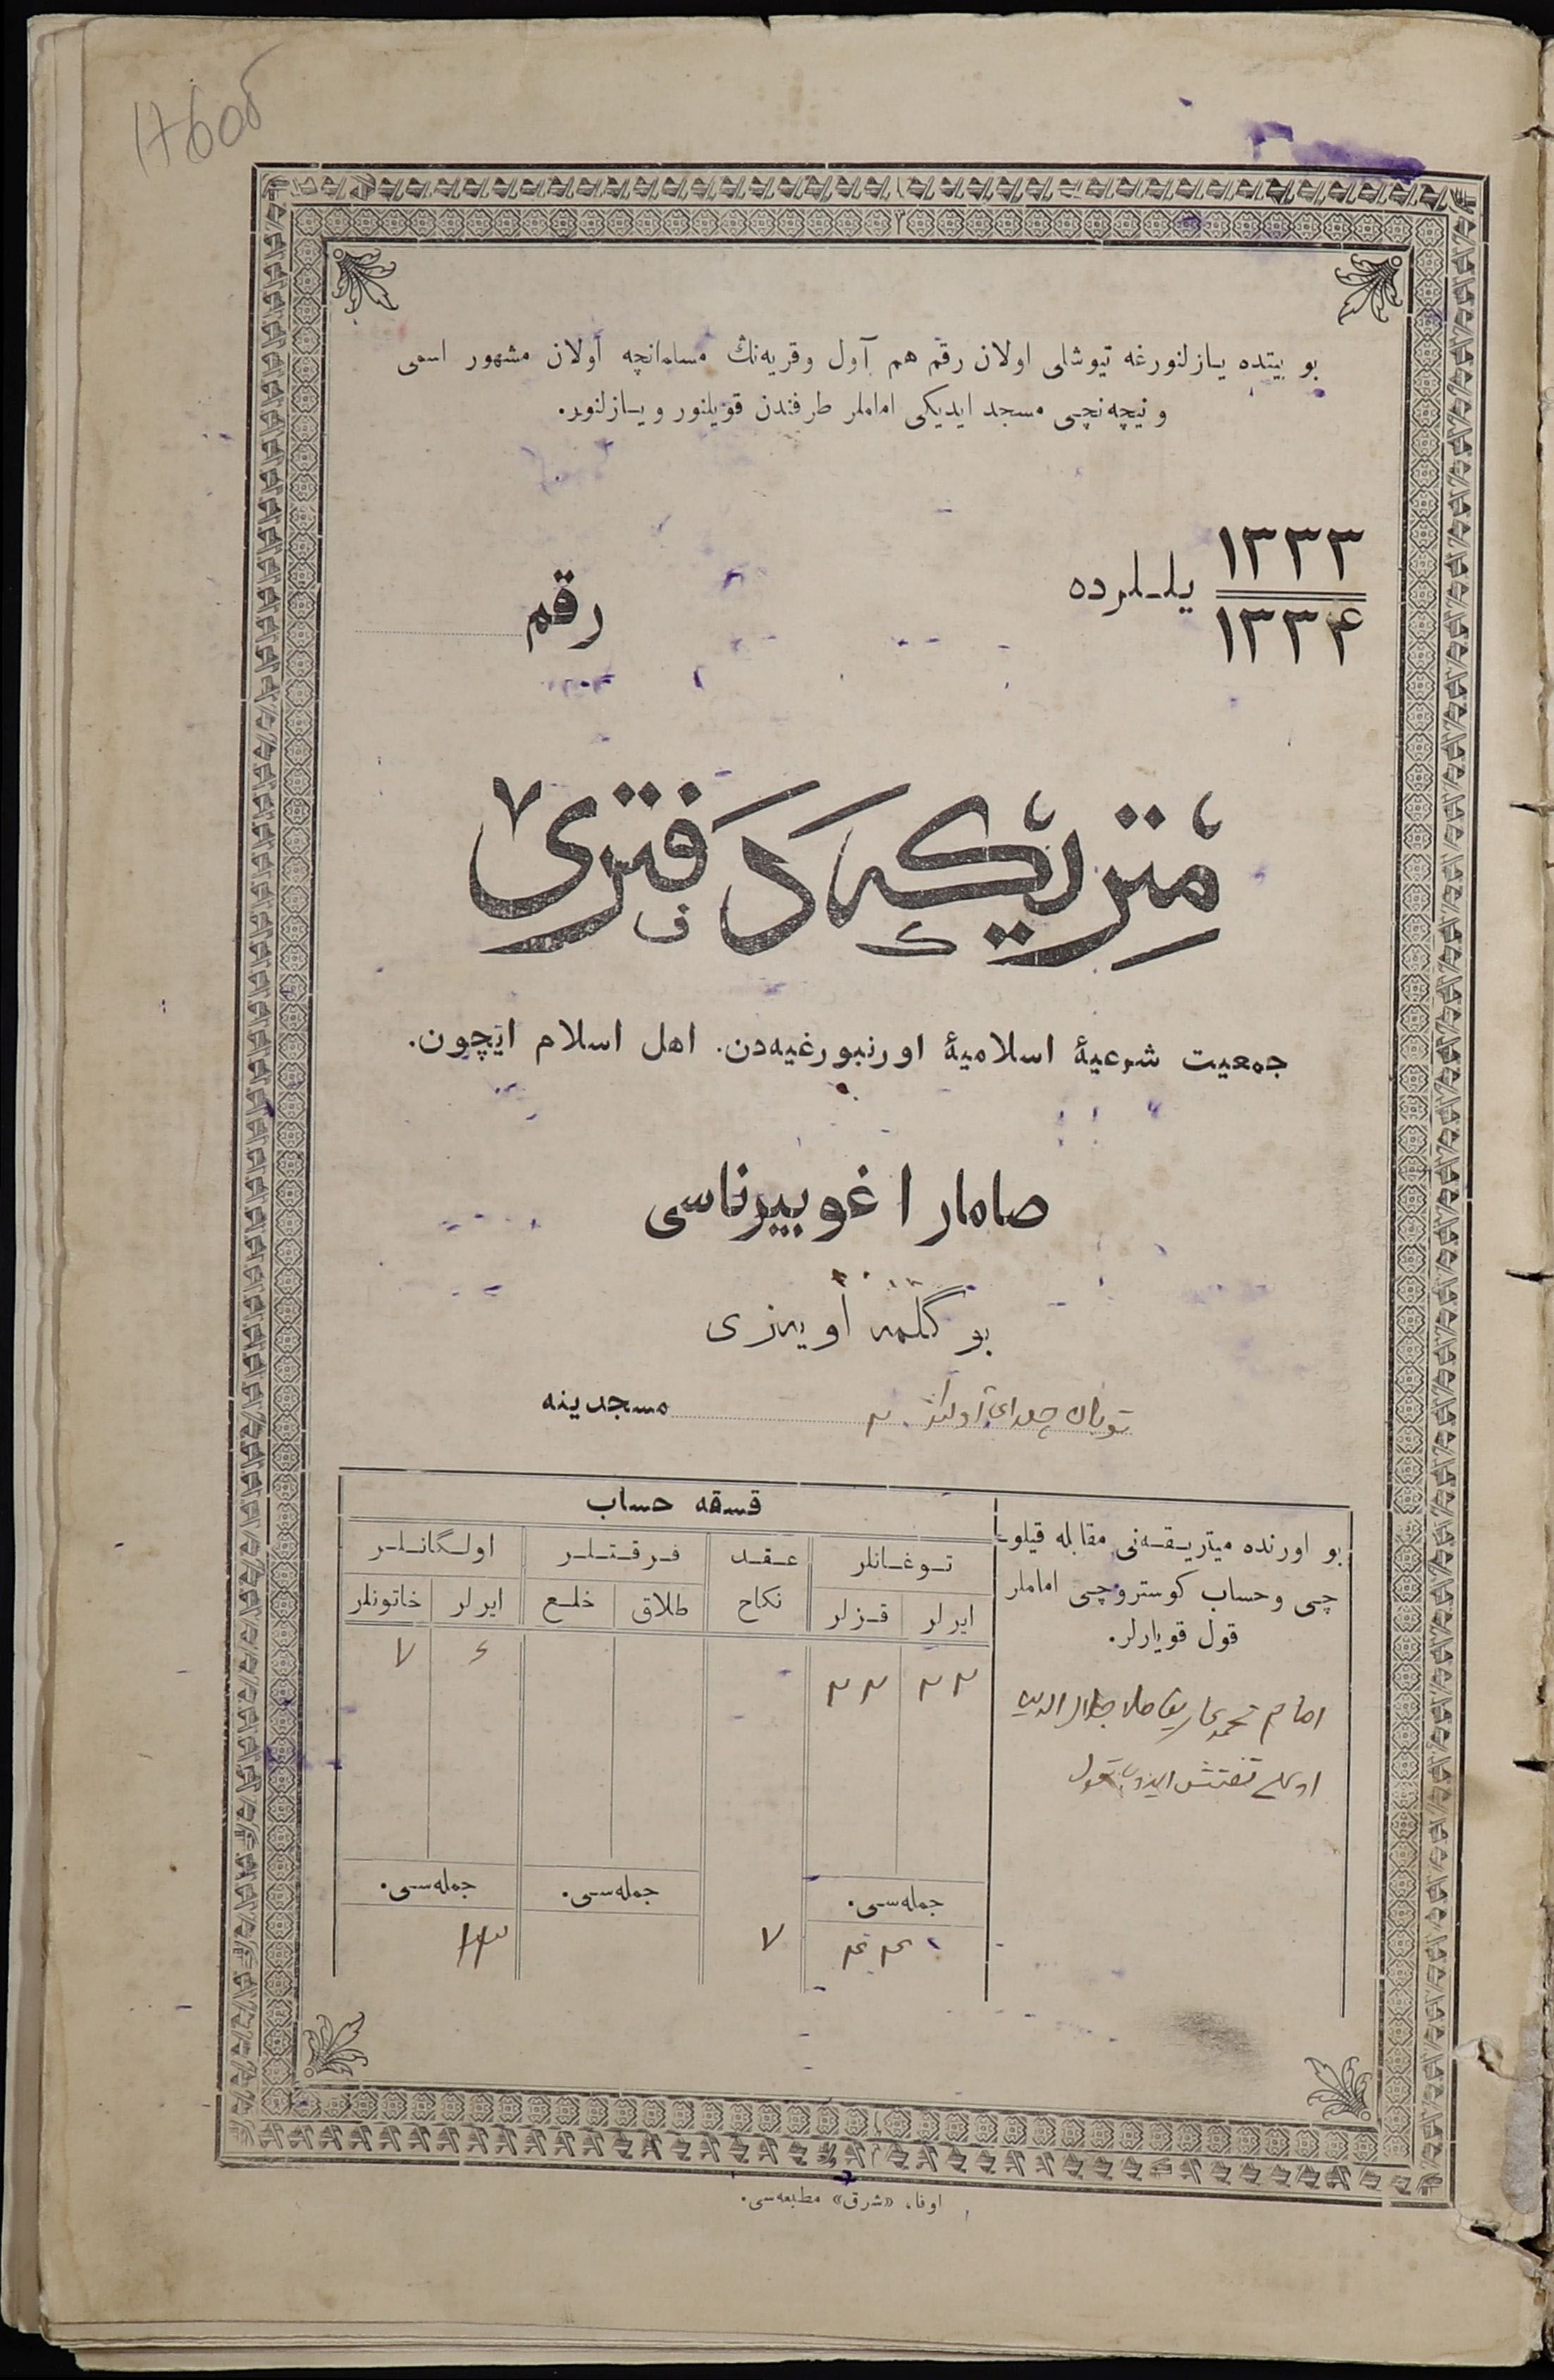 1760б
بو بیتده یازلنورغه تیوشلی اولان رقم هم آول وقریه‌نڭ مسلمانچه اولان مشهور اسمی
و نیچه‌نچی مسجد ایدیکی اماملر طرفندن قویلنور و یازلنور.
۱۳۳۳
۱۳۳۴
یللرده
رقم
متریکه دفتری
جمعیت شرعیهٔ اسلامیهٔ اورنبورغیه‌دن. اهل اسلام ایچون.
صامارا غوبیرناسی
بوگلمه اویه‌زی
توبان چلدای آولنڭ ۲ مسجدینه
بو اورنده میتریقه‌نی مقابله قیلو-
چی وحساب کوستروچی اماملر
قول قویارلر.
امام محمد ملا جلال الدین
اوغلی تفتش ایدوب قول
قسقه حساب
توغانلر
عقد
نکاح
فرقتلر
اولگانلر
ایرلر
قزلر
طلاق
خلع
ایرلر
خاتونلر
۲۲
۲۲
۶
۷
جمله‌سی.
جمله‌سی.
جمله‌سی.
۴۴
۷
۱۳
اوفا، «شرق» مطبعه‌سی.